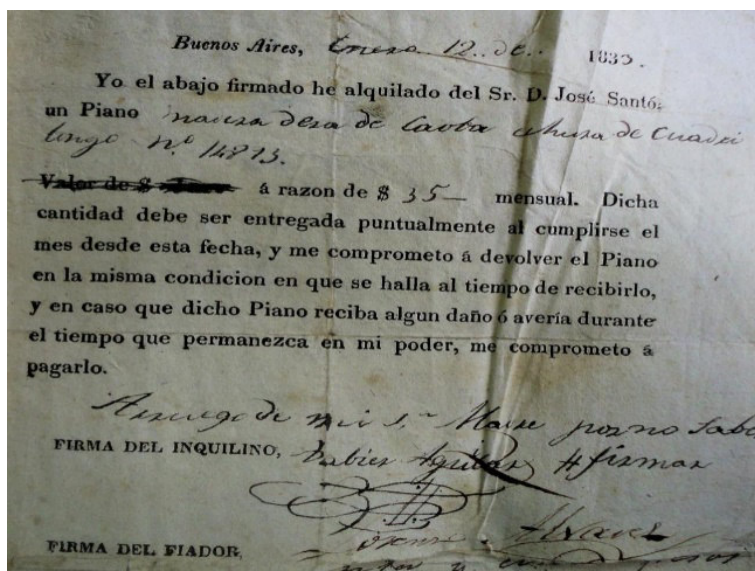 Buenos Aires, Enero 12.. de.. 183
Yo el abajo firmado he alquilado del Sr. D. José Santó;
un Piano de Caoba de
nº. 14893.
Valor de $ á razon de $ 35— mensual. Dicha
cantidad debe ser entregada puntualmente al cumplirse el
mes desde esta fecha, y me comprometo á devolver el Piano
en la misma condicion en que se halla al tiempo de recibirlo,
y en caso que dicho Piano reciba algun daño ó avería durante
el tiempo que permanezca en mi poder, me comprometo á
pagarlo.
de mi por no sabe
FIRMA DEL INQUILINO, Aguilar firmar
FIRMA DEL FIADOR, Alvarez